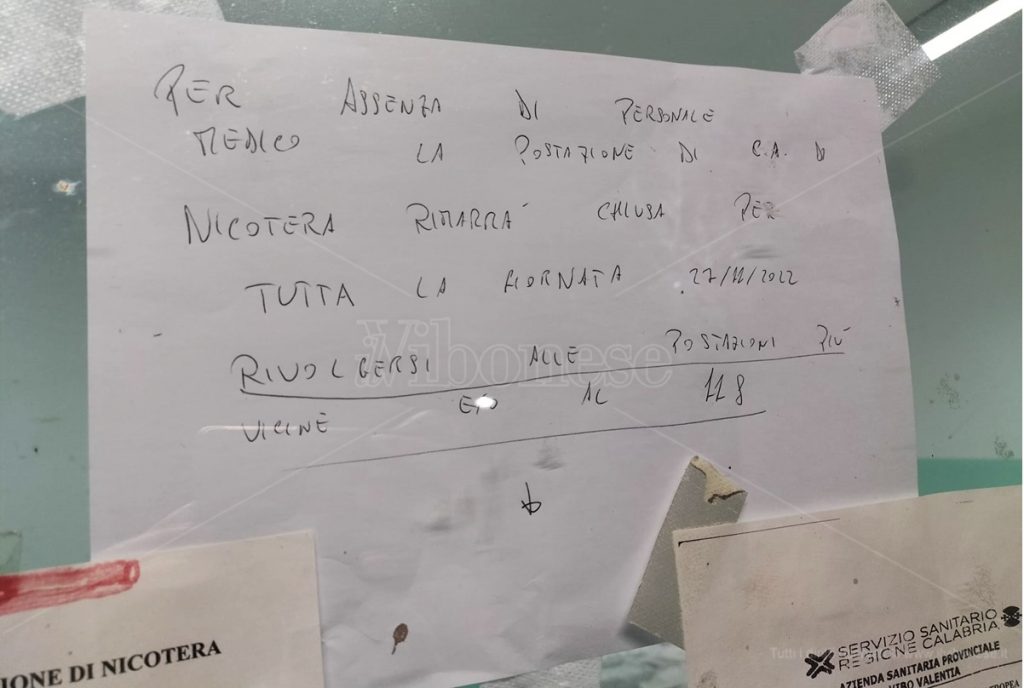 PER ASSENZA DI PERSONALE
MEDICO LA POSTAZIONE DI C.A. DI
NICOTERA RIMARRA' CHIUSA PER
TUTTA LA GIORNATA 27/11/2022
RIVOLGERSI ALLE POSTAZIONI PIÙ
VICINE E/O AL 118
il Vibonese
IONE DI NICOTERA
SERVIZIO SANITARIO
REGIONE CALABRIA
AZIENDA SANITARIA PROVINCIALE
VIBO VALENTIA
TROPEA
Tutti i